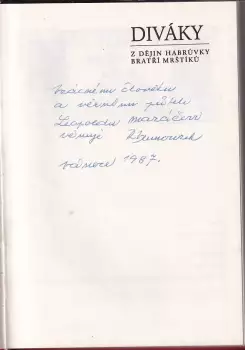 DIVÁKY
Z DĚJIN HABRŮVKY
BRATŘÍ MRŠTÍKŮ
Vzácnému člověku
a věrnému příteli
Leopoldu
věnuje
vánoce 1987.